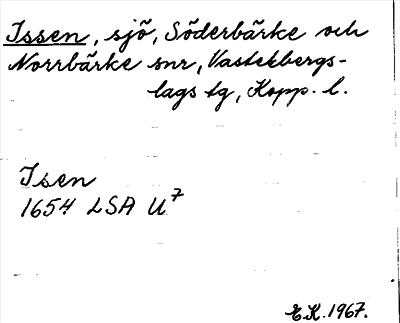 Issen, sjö, Söderbärke och
Norrbärke snr, Västerbergs-
lags tg, Kopp. l.
Isen
1654 LSA U⁷
E.K. 1967.